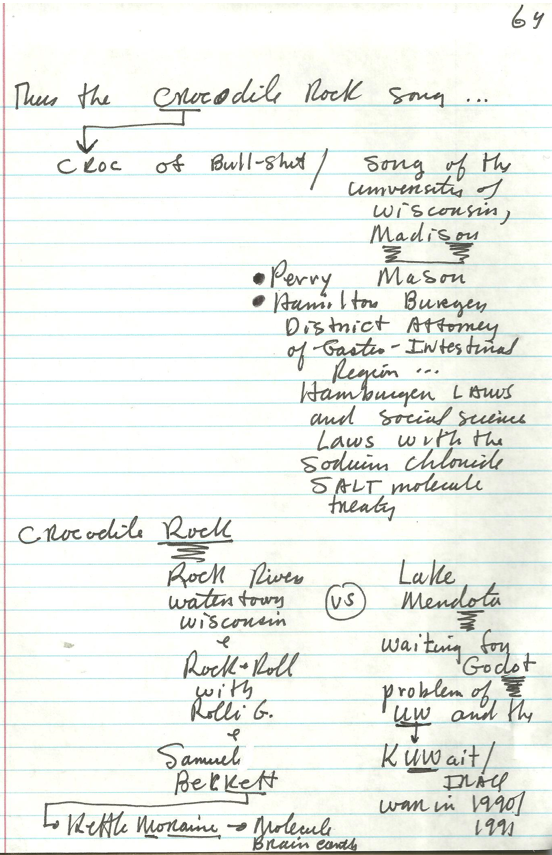 64
Thus the Crocodile Rock song ...
CROC of Bull-shit /
song of the
universities of
wisconsin,
Madison
• Perry Mason
• Hamilton Burger
District Attorney
of Gastro-Intestinal
Region ...
Hamburger LAWS
and social science
Laws with the
Sodium chloride
SALT molecule
treaty
Crocodile Rock
Rock River
watertown
wisconsin
&
Rock + Roll
with
Rolli G.
&
Samuel
BECKett
Kettle Moraine → Molecule
Brain earth
VS
Lake
Mendota
waiting for
Godot
problem of
UW and the
KUWait /
IRAQ
war in 1990/
1991